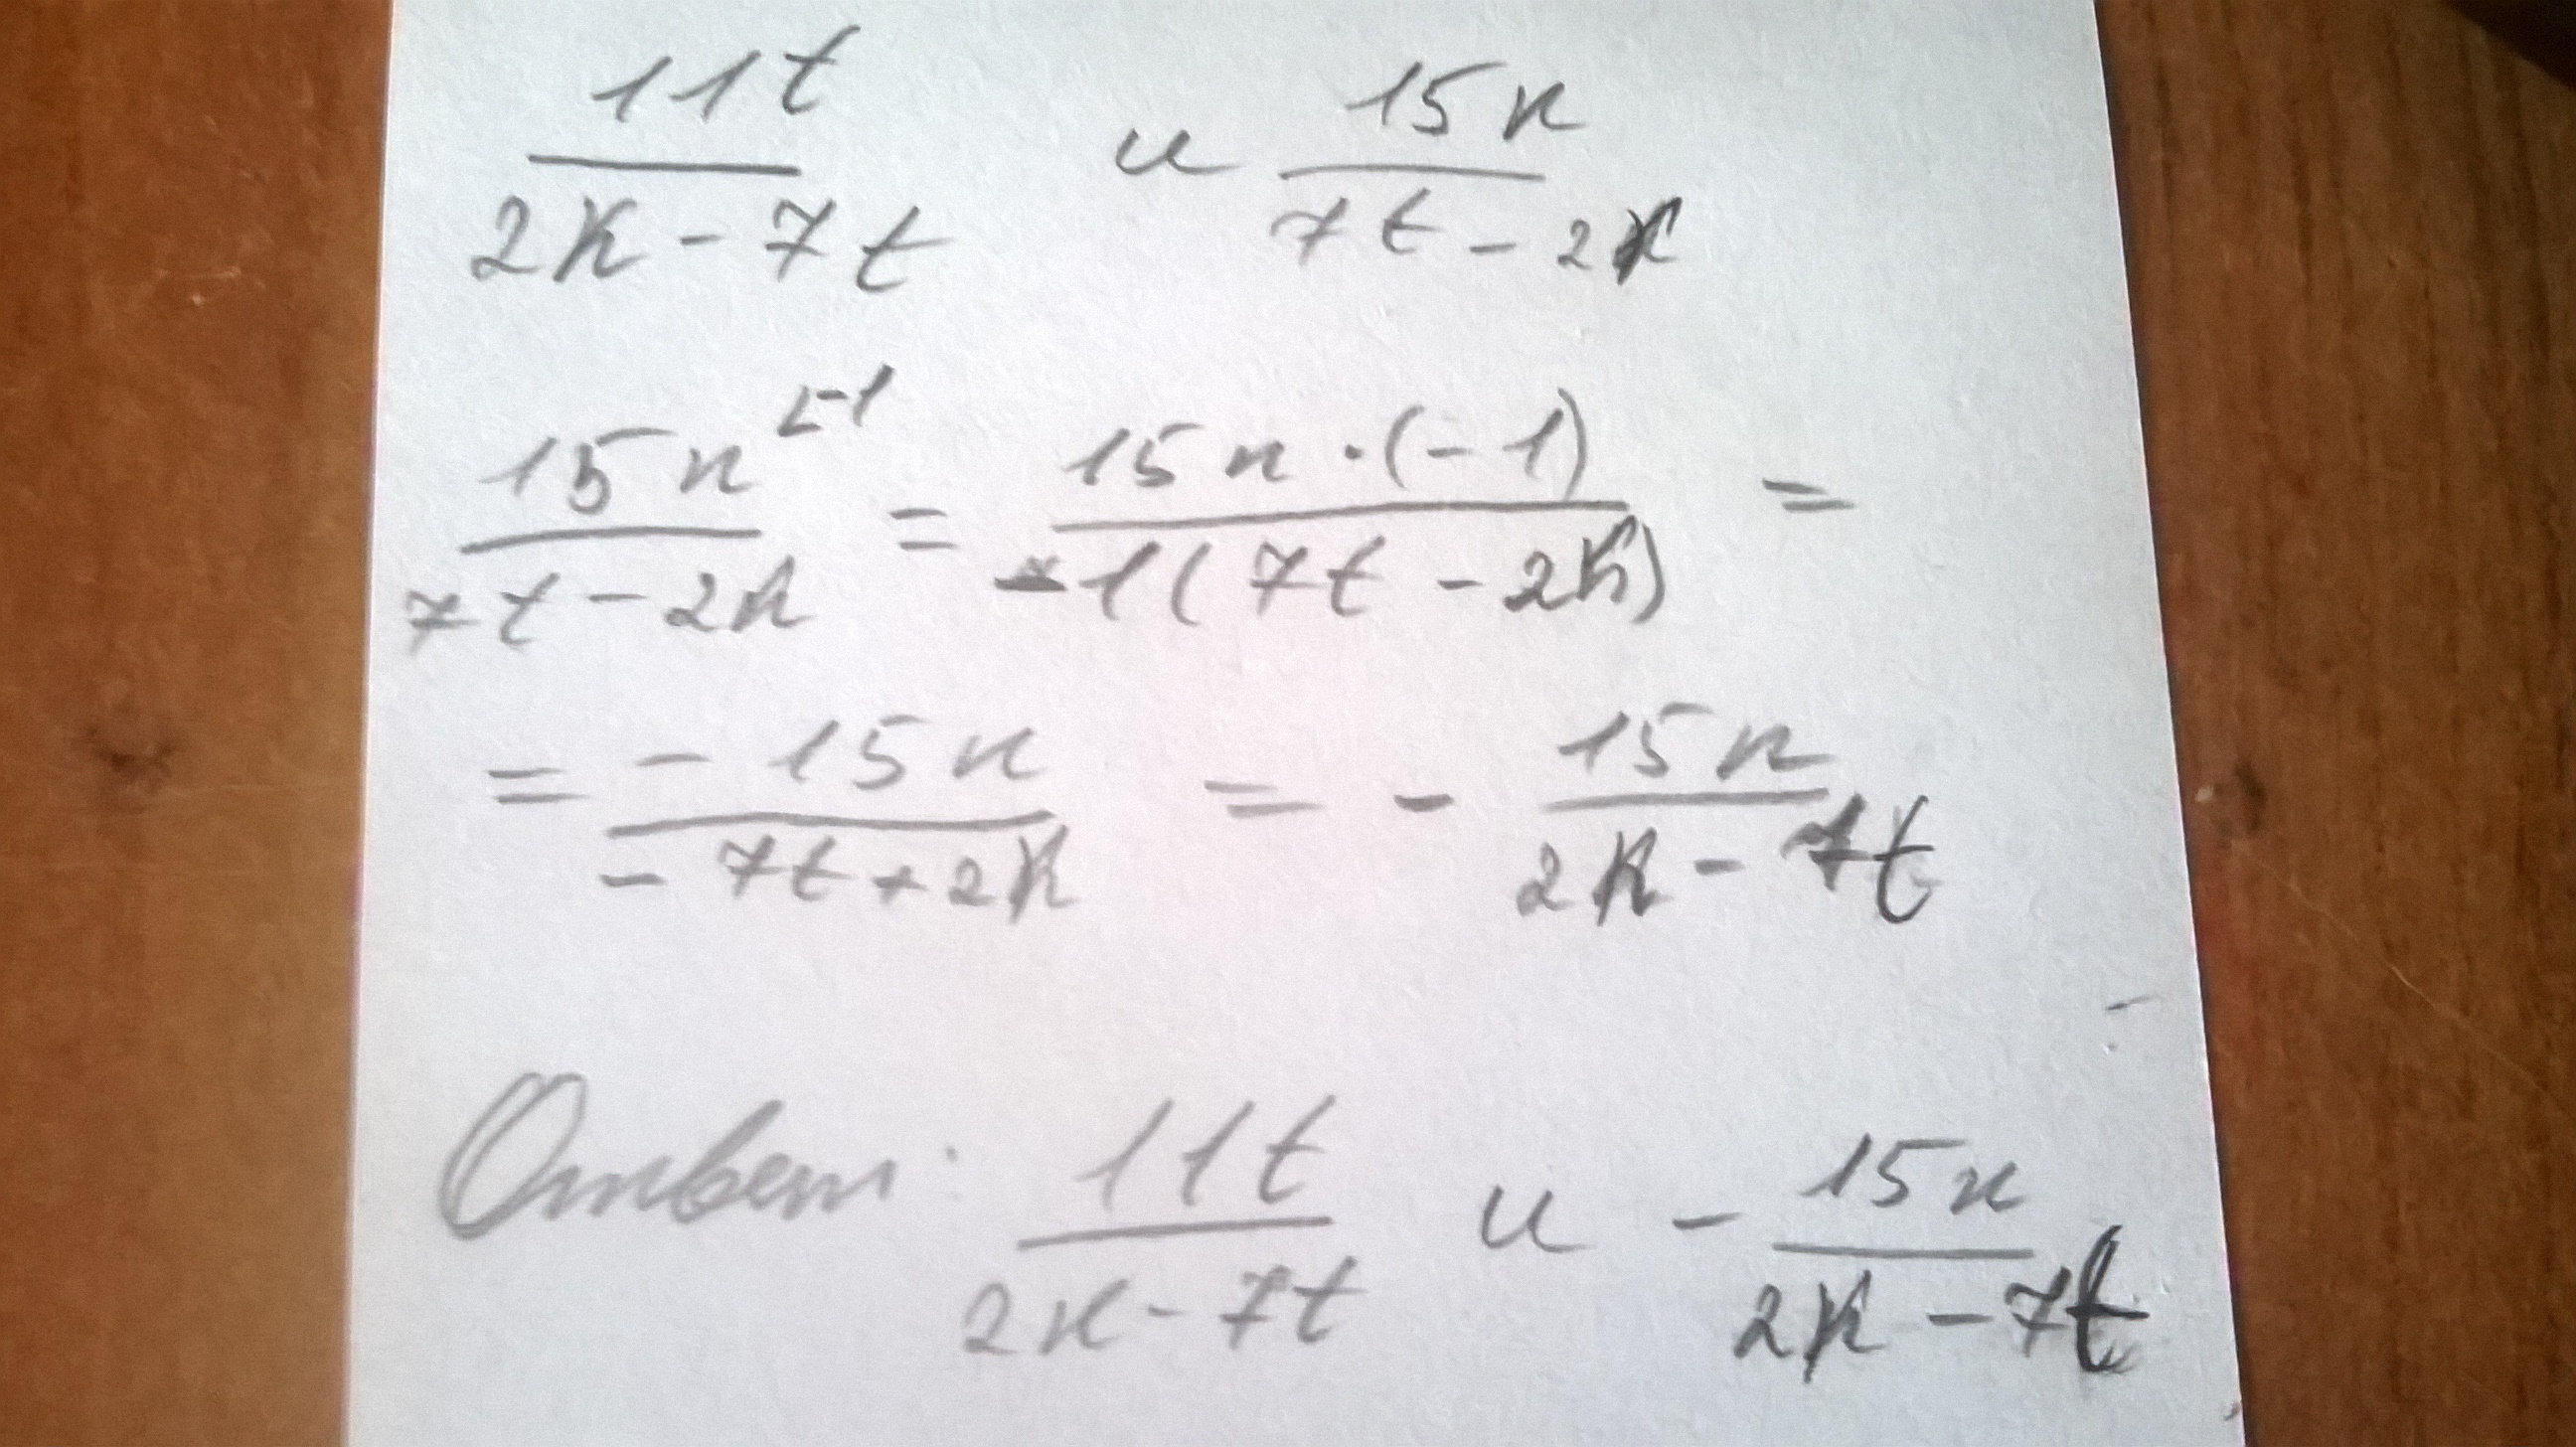 11t/(2k - 7t) и 15k/(7t - 2k)
15k^{∟-1}/(7t - 2k) = 15k · (-1)/(-1(7t - 2k)) =
= -15k/(-7t + 2k) = - 15k/(2k - 7t)
Ответ: 11t/(2k - 7t) и - 15k/(2k - 7t)